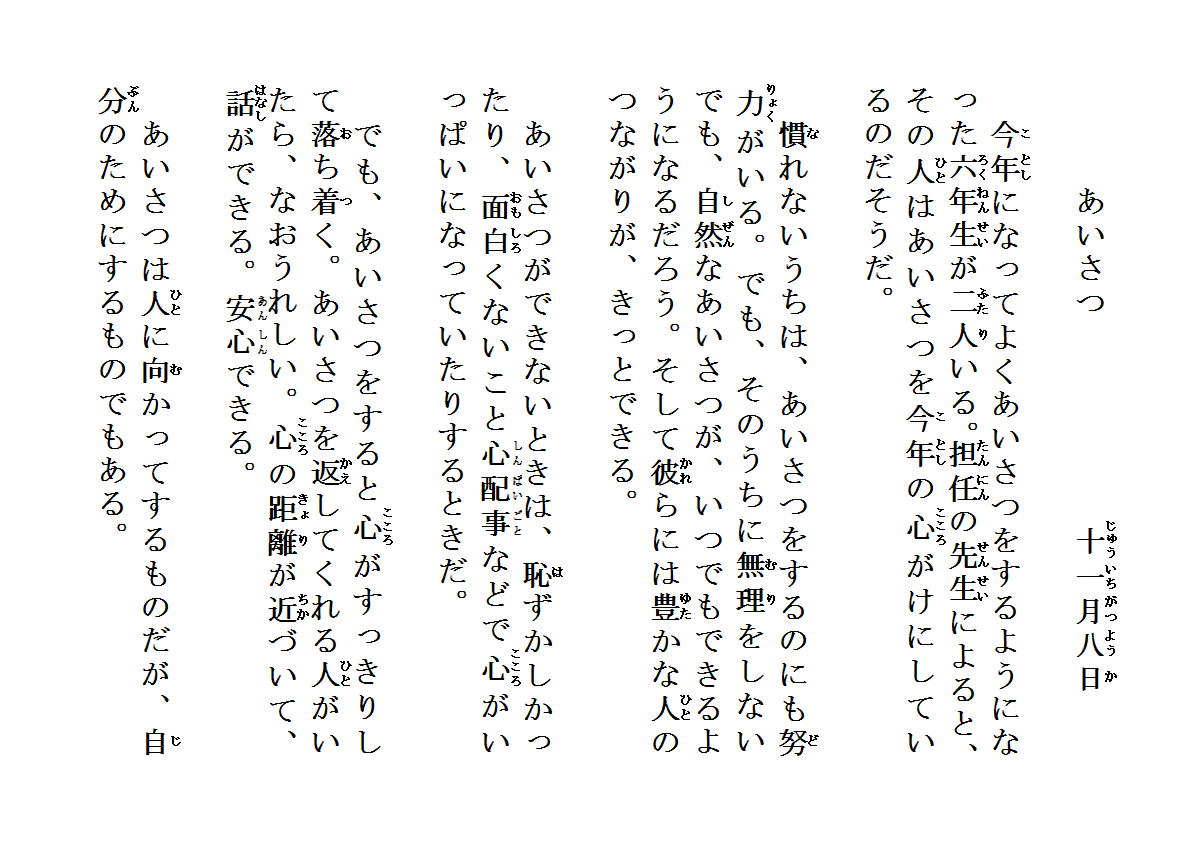 あいさつ　　　　　　十一月八日
　今年になってよくあいさつをするようにな
った六年生が二人いる。担任の先生によると、
その人はあいさつを今年の心がけにしてい
るのだそうだ。
　慣れないうちは、あいさつをするのにも努
力がいる。でも、そのうちに無理をしない
でも、自然なあいさつが、いつでもできるよ
うになるだろう。そして彼らには豊かな人の
つながりが、きっとできる。
　あいさつができないときは、恥ずかしかっ
たり、面白くないこと心配事などで心がい
っぱいになっていたりするときだ。
　でも、あいさつをすると心がすっきりし
て落ち着く。あいさつを返してくれる人がい
たら、なおうれしい。心の距離が近づいて、
話ができる。安心できる。
　あいさつは人に向かってするものだが、自
分のためにするものでもある。